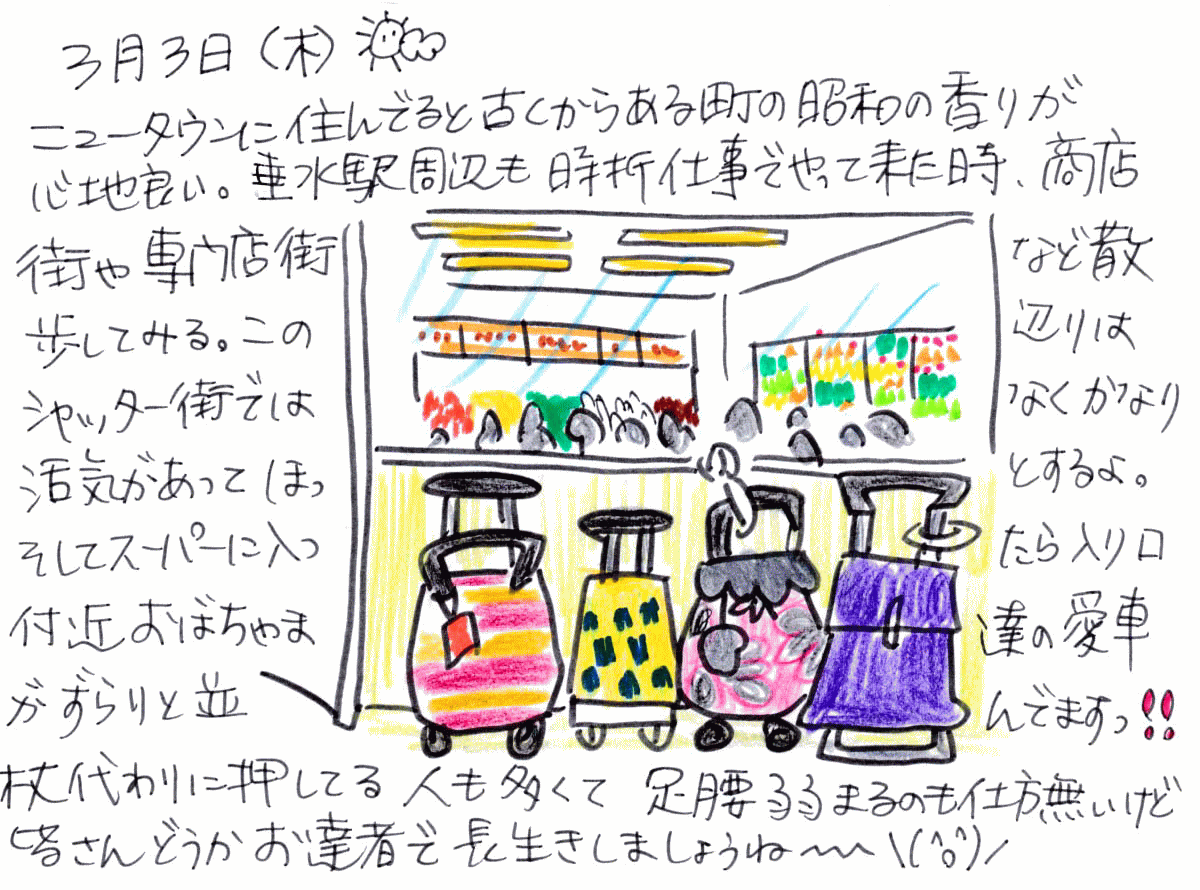 3月3日(木)
ニュータウンに住んでると古くからある町の昭和の香りが
心地良い。垂水駅周辺も時折仕事でやって来た時、商店
街や専門店街 など散
歩してみる。この 辺りは
シャッター街では なくかなり
活気があってほっ とするよ。
そしてスーパーに入っ たら入り口
付近おばちゃま 達の愛車
がずらりと並 んでますっ!!
杖代わりに押してる人も多くて 足腰弱まるのも仕方無いけど
皆さんどうかお達者で長生きしましょうね〜〜\(^o^)/